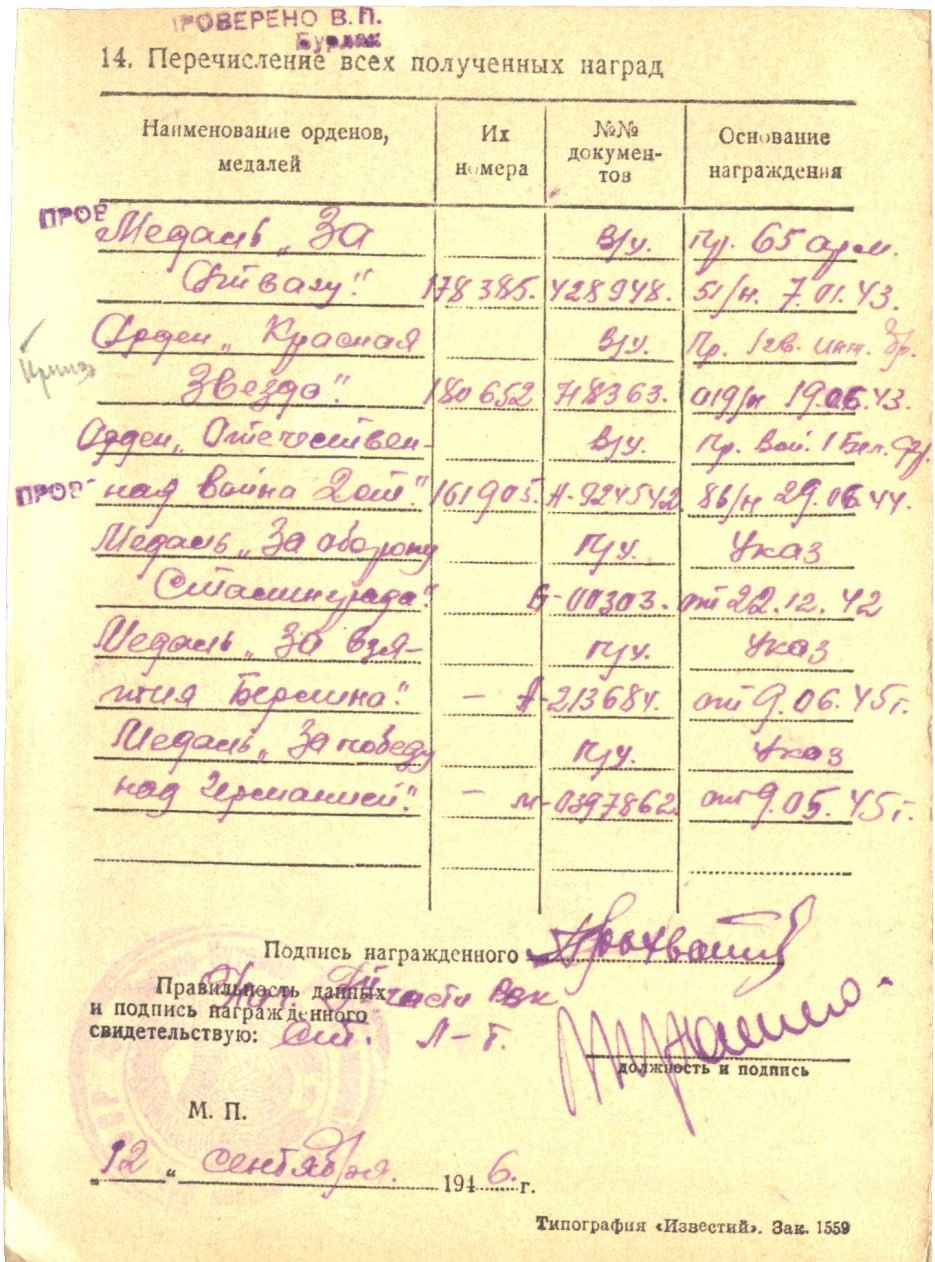 ПРОВЕРЕНО В. П.
Бурлак
14. Перечисление всех полученных наград
Наименование орденов, медалей
Их номера
№№ документов
Основание награждения
ПРОВ
Медаль „За В/у. Пр. 65 арм.
Отвагу". 178385. 428948. 51/н. 7.01.43.
Орден „Красная В/у. Пр. 1гв. инж. бр.
Звезда". 180652 718363. 019/н 19.06.43.
Орден „Отечествен- В/у. Пр. Вой. 1 Бел. фр.
ПРОВ
ная война 2 ст". 161905. А-924542 86/н 29.06.44.
Медаль „За оборону П/у. Указ
Сталинграда". Б-00303. от 22.12.42
Медаль „За взя- П/у. Указ
тия Берлина". — А-213684. от 9.06.45г.
Медаль „За победу П/у. Указ
над Германией". — м-0397862 от 9.05.45г.
Подпись награжденного
Правильность данных
и подпись награжденного
свидетельствую:
Нач. части РВК
ст. Л-т.
должность и подпись
М. П.
„12 " сентября. 1946. г.
Типография «Известий». Зак. 1559